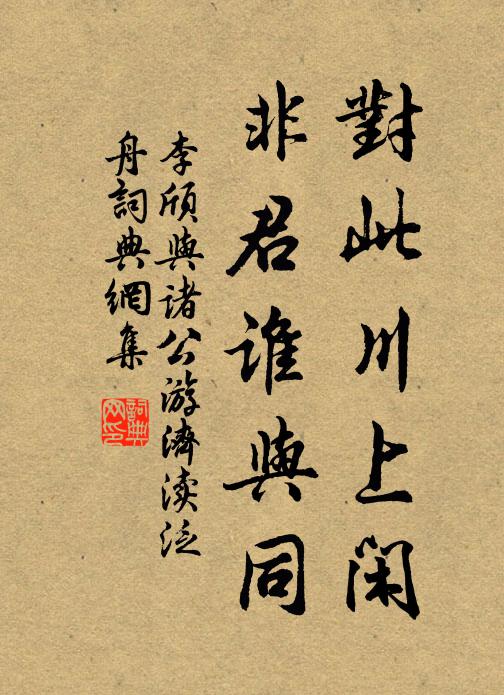 對此川上閑
非君誰與同
李頎與诸公游濟渎泛
舟詞典網集
詞典
网印